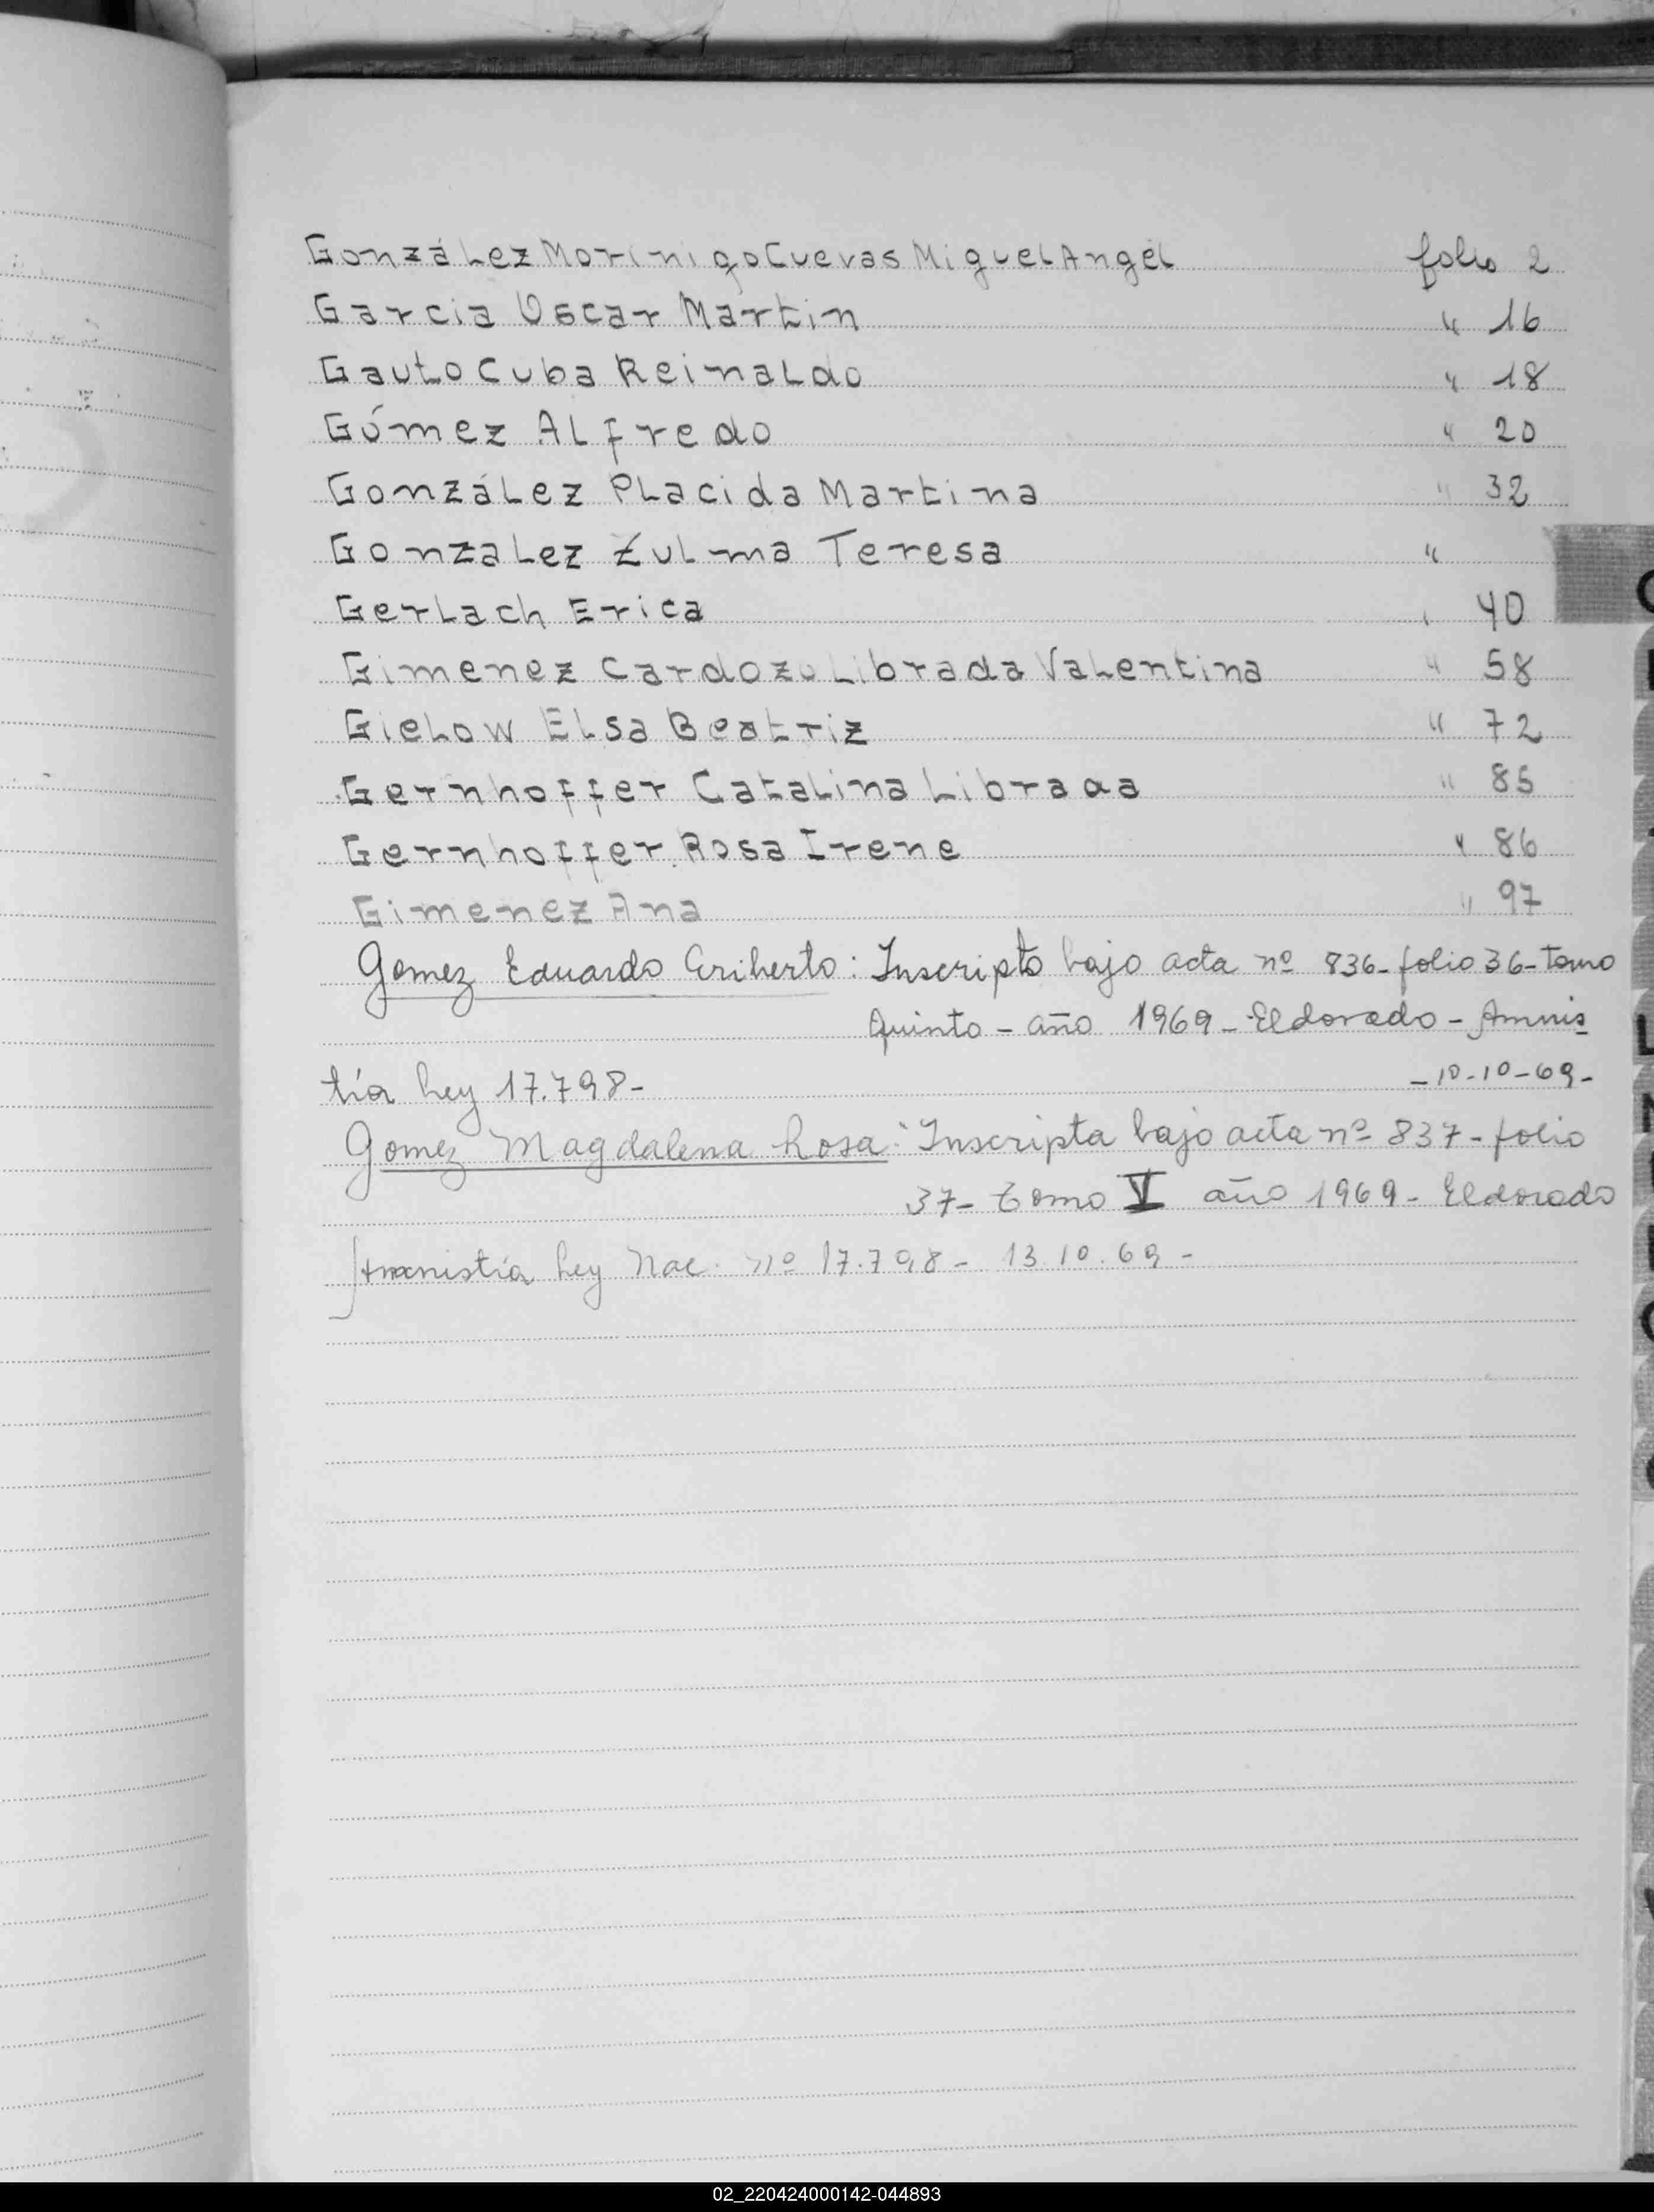 González Morinigo Cuevas Miguel Angel folio 2
Garcia Oscar Martin " 16
Gauto Cuba Reinaldo " 18
Gómez Alfredo " 20
González Placida Martina " 32
Gonzalez Zulma Teresa "
Gerlach Erica " 40
Gimenez Cardozo Librada Valentina " 58
Gielow Elsa Beatriz " 72
Gernhoffer Catalina Librada " 85
Gernhoffer Rosa Irene " 86
Gimenez Ana " 97
Gomez Eduardo Eriberto: Inscripto bajo acta nº 836- folio 36- Tomo
Quinto - año 1969 - Eldorado - Amnis
tía Ley 17.798- - 10-10-69-
Gomez Magdalena Rosa: Inscripta bajo acta nº 837- folio
37- Tomo V año 1969- Eldorado
Amnistía Ley Nac. nº 17.798- 13.10.69-
02_220424000142-044893